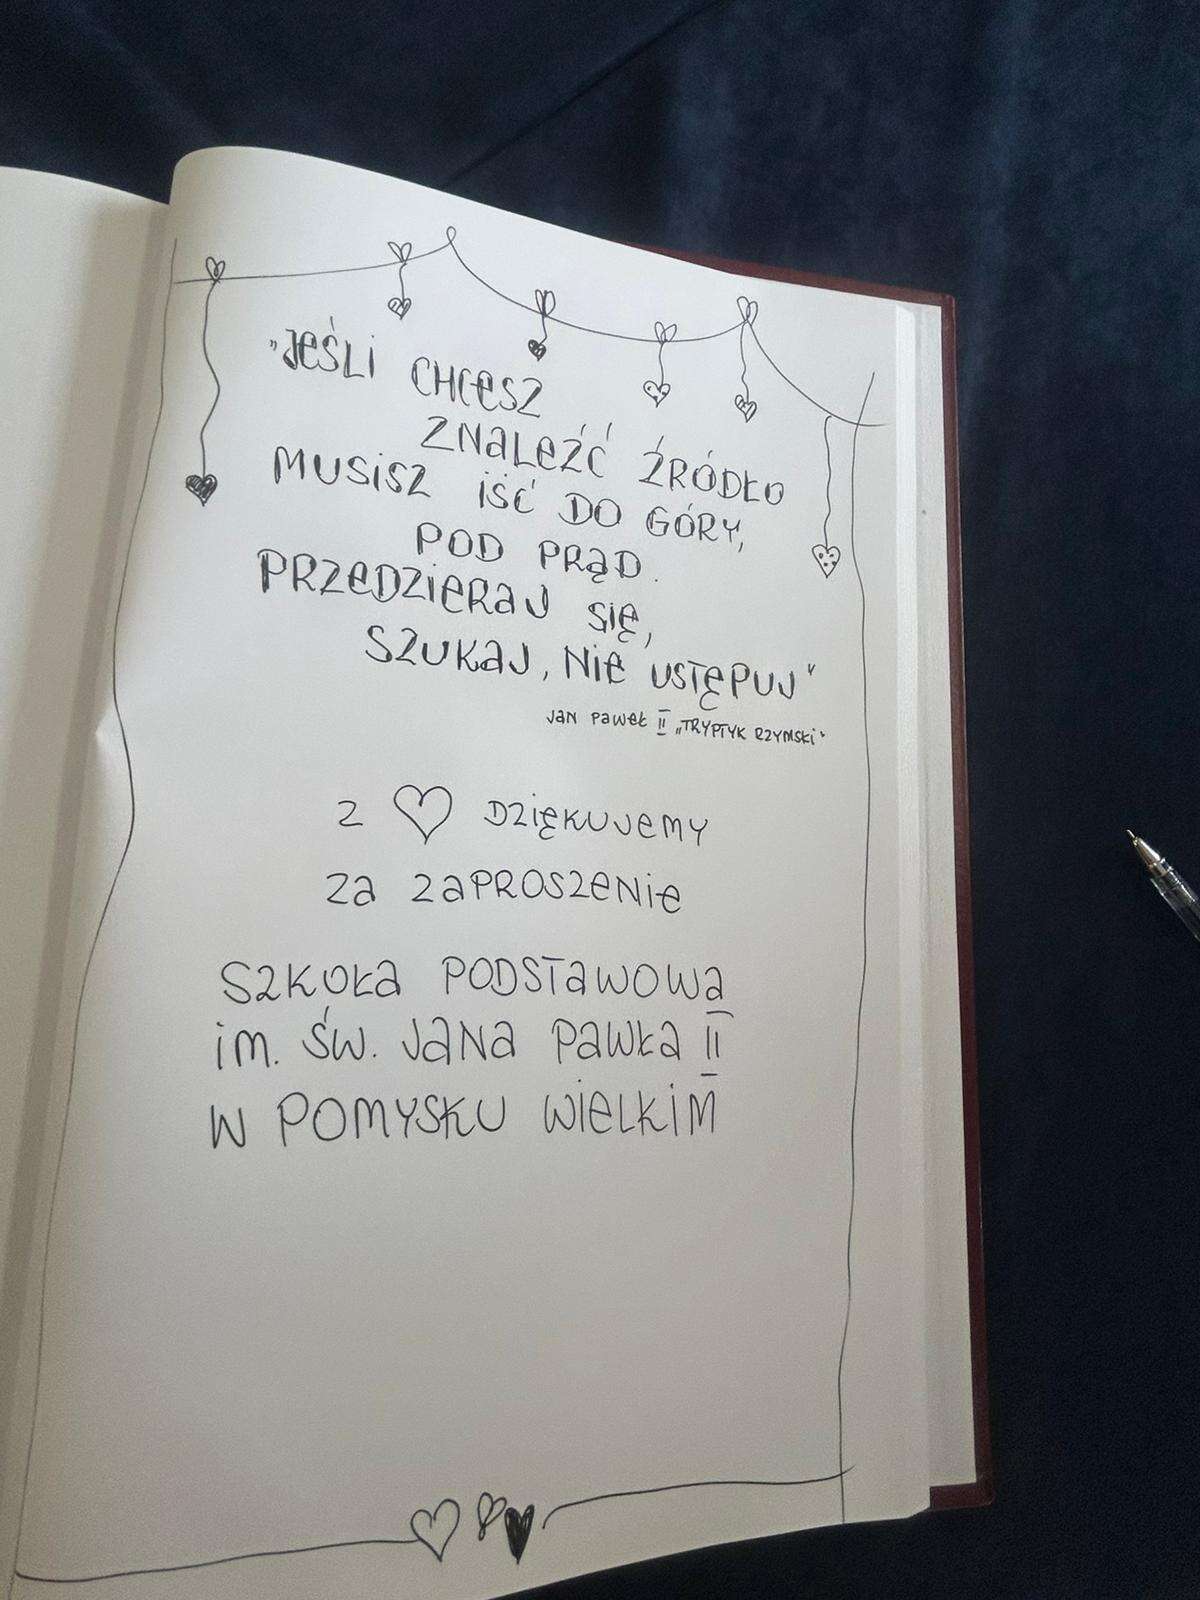 „JEŚLI CHCESZ
ZNALEŹĆ ŹRÓDŁO
MUSISZ IŚĆ DO GÓRY,
POD PRĄD.
PRZEDZIERAJ SIĘ,
SZUKAJ, NIE USTĘPUJ"
JAN PAWEŁ II „TRYPTYK RZYMSKI"
Z ♡ DZIĘKUJEMY
ZA ZAPROSZENIE
SZKOŁA PODSTAWOWA
IM. ŚW. JANA PAWŁA II
W POMYSKU WIELKIM